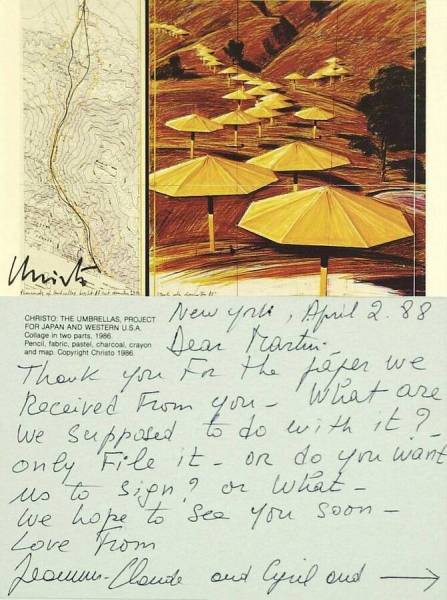 Christo
CHRISTO: THE UMBRELLAS, PROJECT
FOR JAPAN AND WESTERN U.S.A.
Collage in two parts, 1986.
Pencil, fabric, pastel, charcoal, crayon
and map. Copyright Christo 1986.
New York, April 2. 88
Dear Martin
Thank you For the paper we
Received From you - What are
we supposed to do with it?
only File it - or do you want
us to sign? or What -
we hope to see you soon -
Love From
Jeanne-Claude and Cyril and →